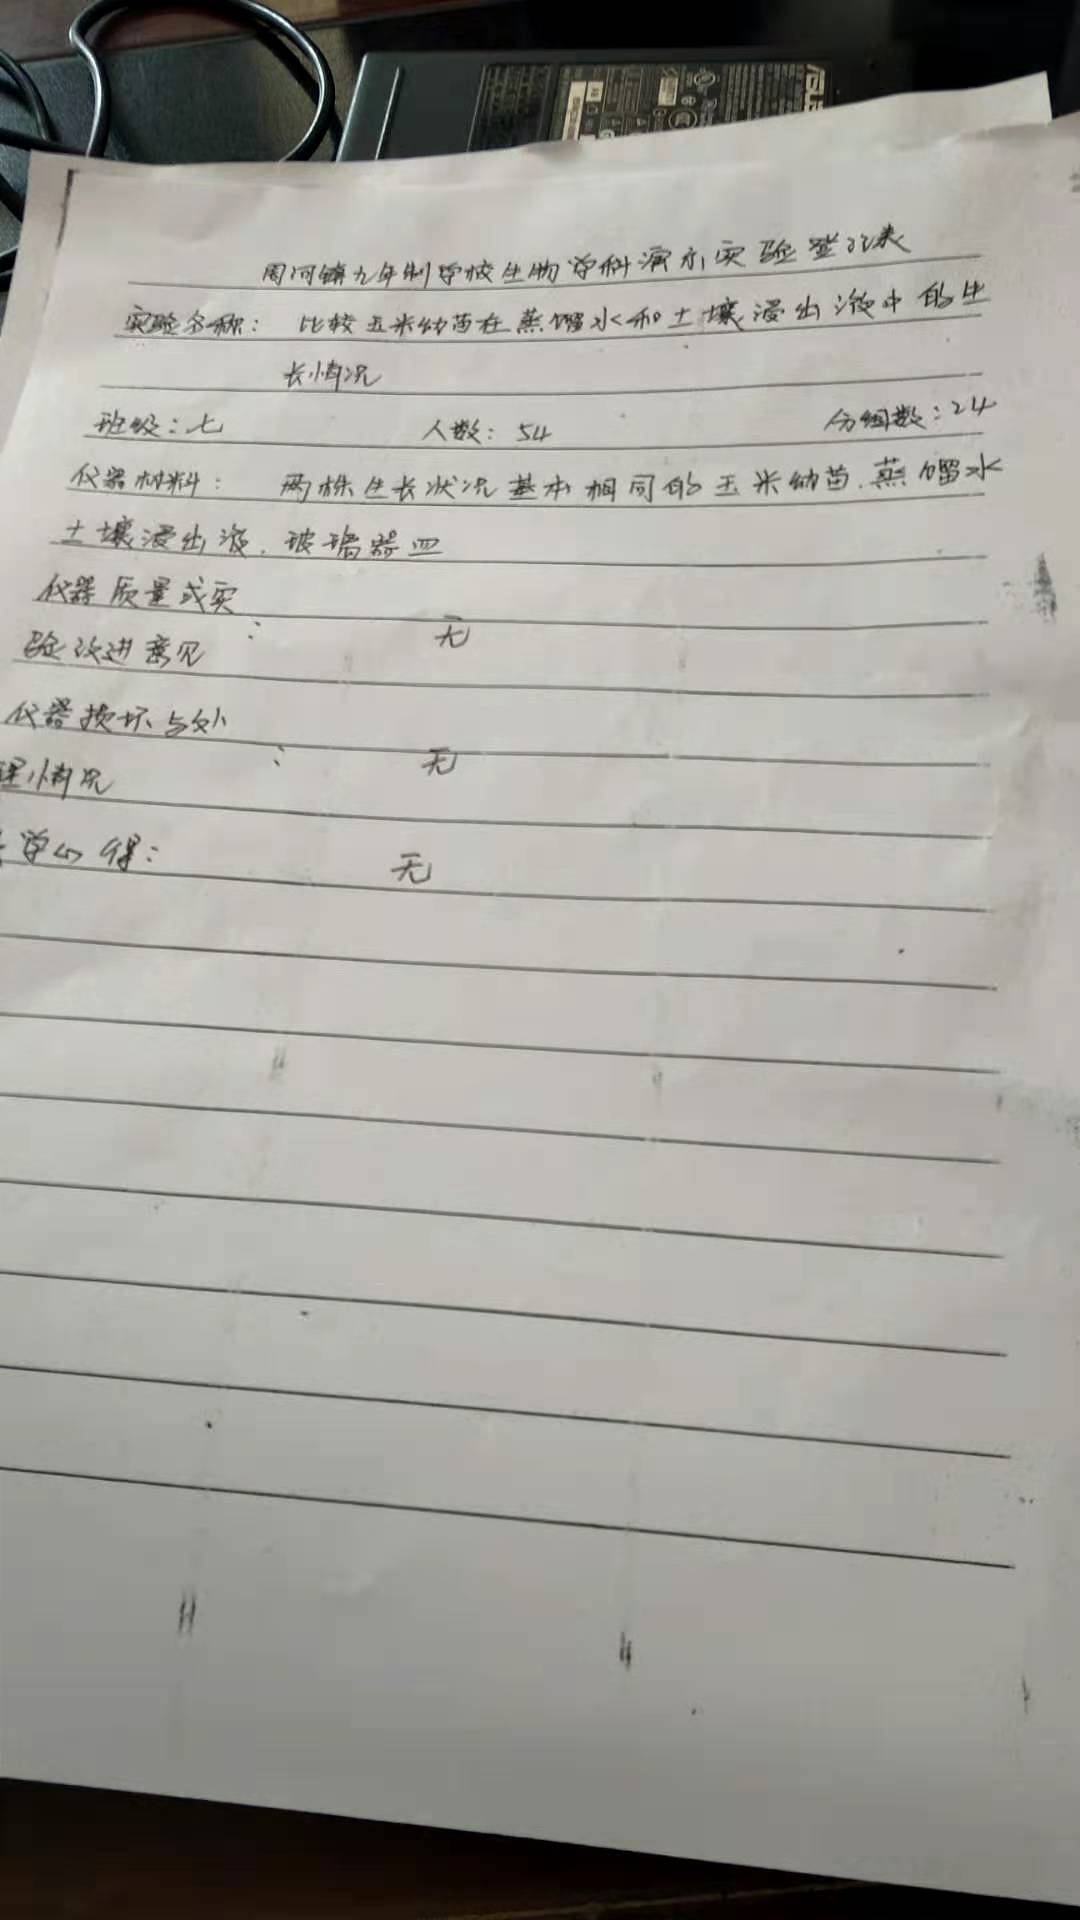 ASUS
周河镇九年制学校生物学科演示实验登记表
实验名称: 比较玉米幼苗在蒸馏水和土壤浸出液中的生
长情况
班级:七 人数: 54 分组数:24
仪器材料: 两株生长状况基本相同的玉米幼苗.蒸馏水
土壤浸出液.玻璃器皿
仪器质量或实
验改进意见 : 无
仪器损坏与处
理情况 : 无
学心得: 无